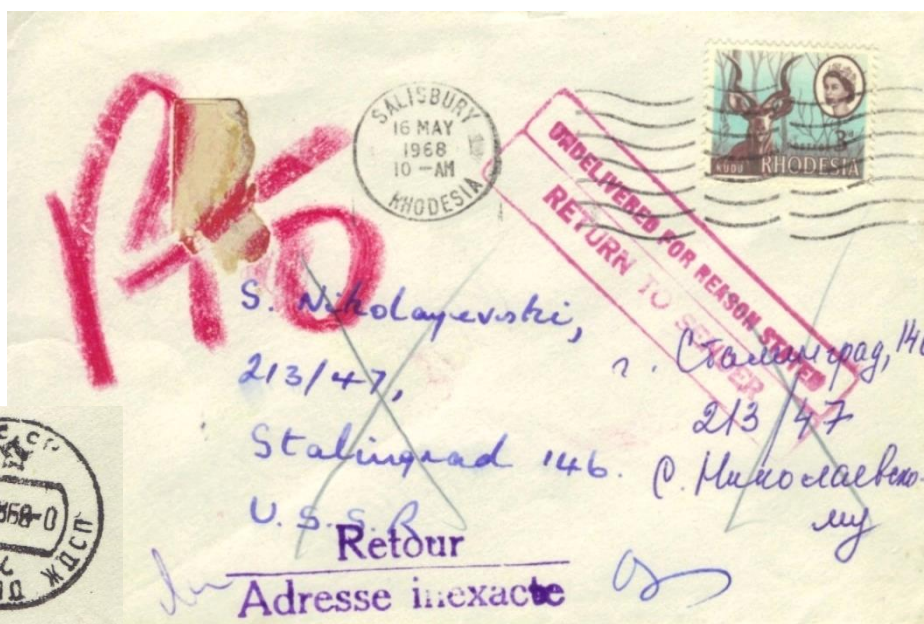 SALISBURY
16 MAY
1968
10 – AM
RHODESIA
KUDU RHODESIA
UNDELIVERED FOR REASON STATED
RETURN TO SENDER
S. Nikolayevski,
213/47,
Stalingrad 146.
U.S.S.R
г. Сталинград, 146
213 / 47
С. Николаевско-
му
Retour
Adresse inexacte
ЖДСП